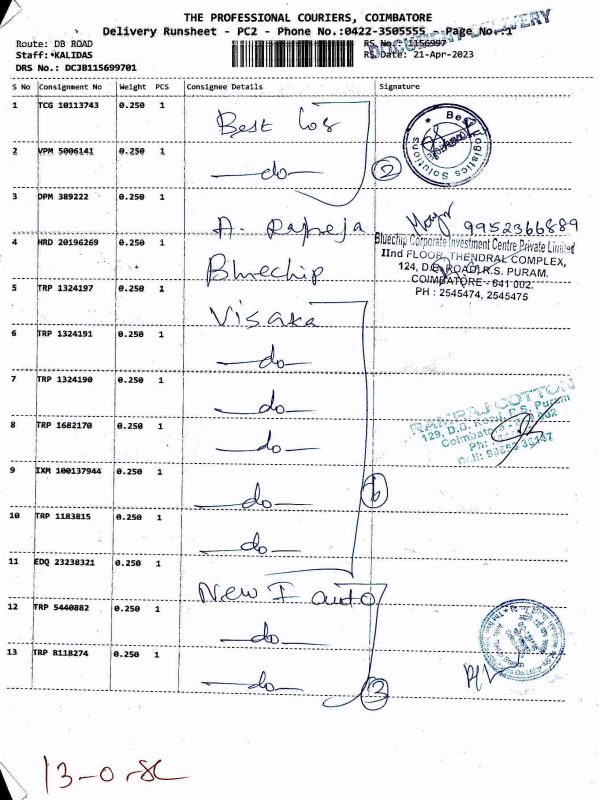 THE PROFESSIONAL COURIERS, COIMBATORE
Delivery Runsheet - PC2 - Phone No.:0422-3505555 - Page No.:1
DOCUMENT DELIVERY
Route: DB ROAD
RS No: 1156997
Staff: KALIDAS
RS Date: 21-Apr-2023
DRS No.: DCJB115699701
S No Consignment No Weight PCS Consignee Details Signature
1 TCG 10113743 0.250 1 Best log
Best Logistics Solutions
2 VPM 5006141 0.250 1 —do— 2
3 DPM 389222 0.250 1 A. Rapreja 9952366889
Bluechip Corporate Investment Centre Private Limited
IInd FLOOR, THENDRAL COMPLEX,
124, D.B. ROAD, R.S. PURAM.
COIMBATORE - 641 002.
PH : 2545474, 2545475
4 HRD 20196269 0.250 1 Bluechip
5 TRP 1324197 0.250 1 Visaka
6 TRP 1324191 0.250 1 —do—
7 TRP 1324190 0.250 1 —do—
RAMRAJ COTTON
129, D.B. Road, R.S. Puram
8 TRP 1682170 0.250 1 —do—
9 IXM 100137944 0.250 1 —do— 6
10 TRP 1183815 0.250 1 —do—
11 EDQ 23238321 0.250 1 New I auto
12 TRP 5440882 0.250 1 —do—
13 TRP 8118274 0.250 1 —do— 3